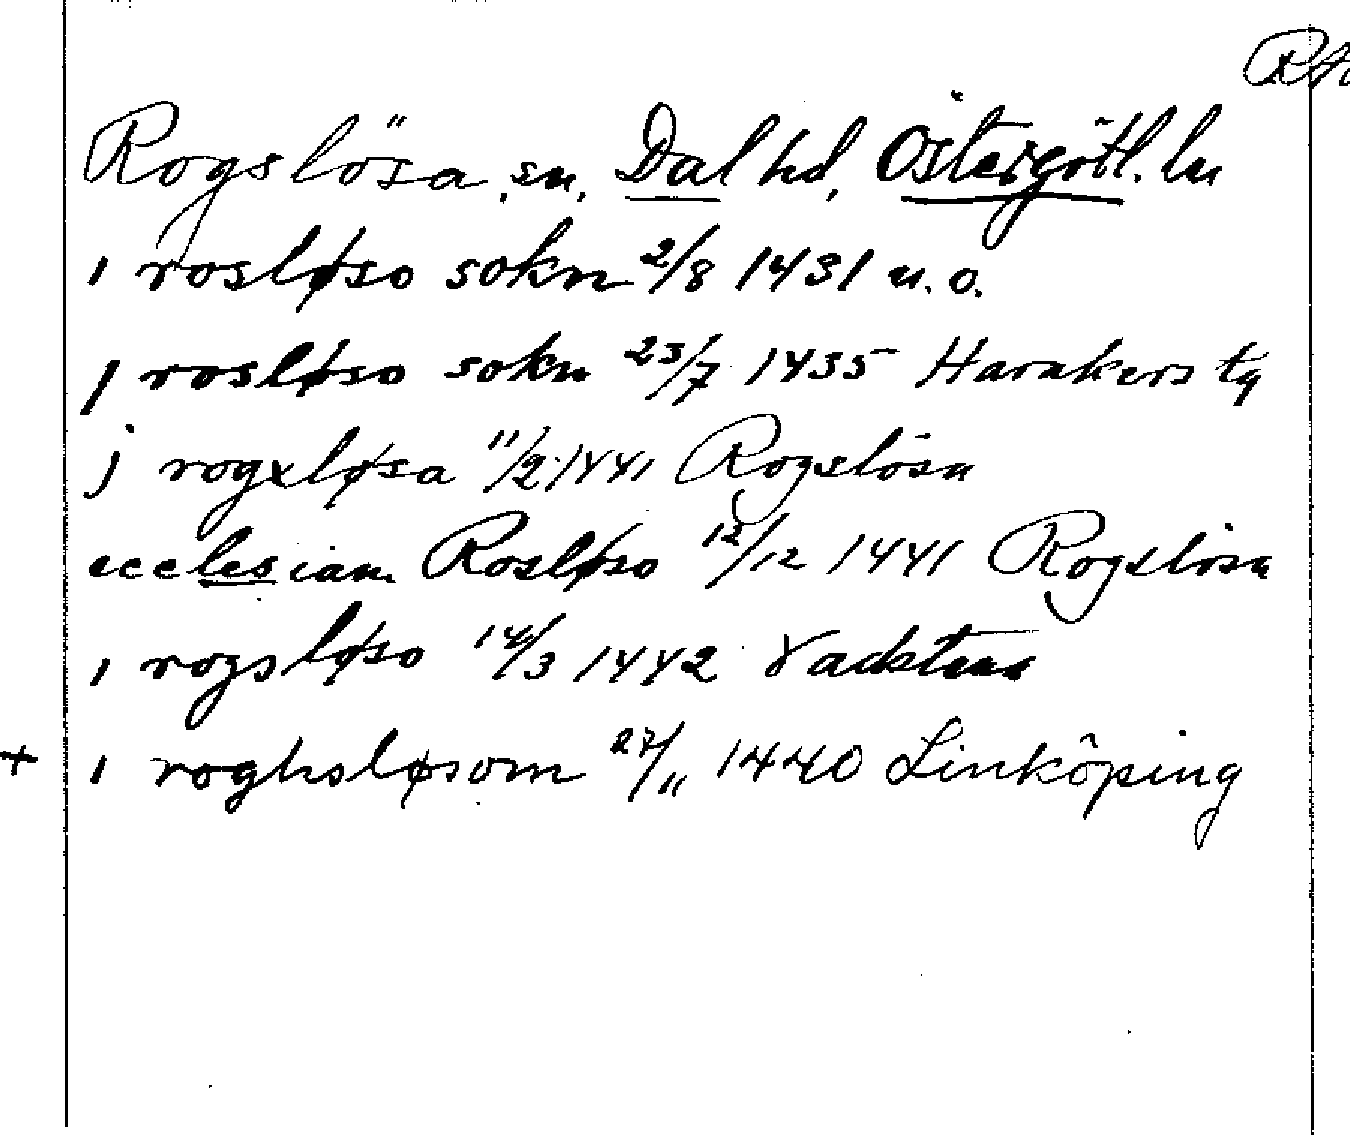 RA
Rogslösa, sn, Dal hd, Östergötl. ln
i rosløso sokn 2/8 1431 u.o.
j rosløso sokn 23/7 1435 Harakers tg
j rogxløsa 11/2 1441 Rogslösa
ecclesiam Rosløso 12/12 1441 Rogslösa
i rogsløso 14/3 1442 Vadstena
+ i roghsløsom 27/11 1440 Linköping